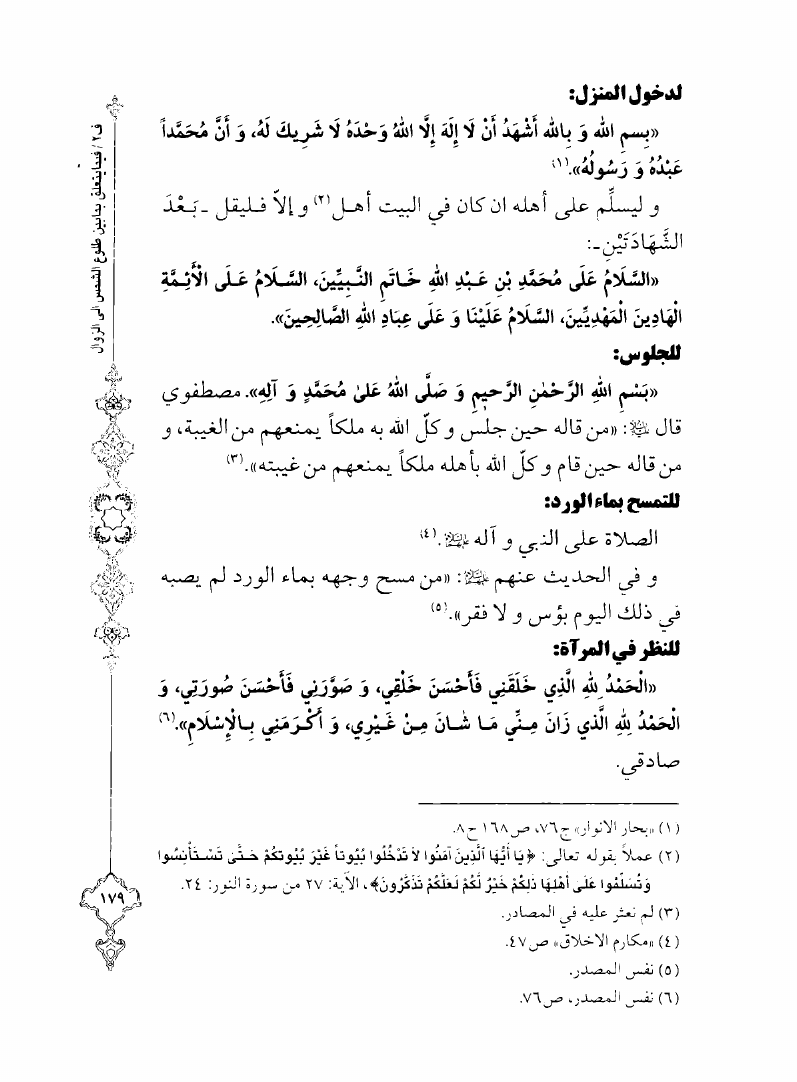 لدخول المنزل:
«بِسمِ الله وَ بِالله أَشْهَدُ أَنْ لَا إِلَهَ إِلَّا اللهُ وَحْدَهُ لَا شَرِيكَ لَهُ، وَ أَنَّ مُحَمَّداً
عَبْدُهُ وَ رَسُولُهُ».(١)
و ليسلِّم على أهله ان كان في البيت أهـل(٢) و إلاّ فـليقل ـ بَـعْدَ
الشَّهَادَتَيْنِ ـ:
«السَّلَامُ عَلَى مُحَمَّدِ بْنِ عَـبْدِ اللهِ خَـاتَمِ النَّـبِيِّينَ، السَّـلَامُ عَـلَى الْأَئِـمَّةِ
الْهَادِينَ الْمَهْدِيِّينَ، السَّلَامُ عَلَيْنَا وَ عَلَى عِبَادِ اللهِ الصَّالِحِينَ».
للجلوس:
«بَسْمِ اللهِ الرَّحْمٰنِ الرَّحيمِ وَ صَلَّى اللهُ عَلىٰ مُحَمَّدٍ وَ آلِهِ». مصطفوي
قال ﷺ: «من قاله حين جلس و كلّ الله به ملكاً يمنعهم من الغيبة، و
من قاله حين قام و كلّ الله بأهله ملكاً يمنعهم من غيبته».(٣)
للتمسح بماء الورد:
الصلاة على النبي و آله ﷺ.(٤)
و في الحديث عنهم: «من مسح وجهه بماء الورد لم يصبه
في ذلك اليوم بؤس و لا فقر».(٥)
للنظر في المرآة:
«الْحَمْدُ لِلهِ الَّذِي خَلَقَنِي فَأَحْسَنَ خَلْقِي، وَ صَوَّرَنِي فَأَحْسَنَ صُورَتِي، وَ
الْحَمْدُ لِلهِ الَّذي زَانَ مِـنِّي مَـا شَـانَ مِـنْ غَـيْرِي، وَ أَكْـرَمَنِي بِـالْإِسْلَامِ».(٦)
صادقي.
(١) «بحار الانوار» ج ٧٦، ص ١٦٨ ح ٨.
(٢) عملاً بقوله تعالى: ﴿يَا أَيُّهَا الَّذِينَ آمَنُوا لَا تَدْخُلُوا بُيُوتاً غَيْرَ بُيُوتِكُمْ حَـتَّى تَسْـتَأْنِسُوا
وَتُسَلِّمُوا عَلَى أَهْلِهَا ذَلِكُمْ خَيْرٌ لَكُمْ لَعَلَّكُمْ تَذَكَّرُونَ﴾، الآية: ٢٧ من سورة النور: ٢٤.
(٣) لم نعثر عليه في المصادر.
(٤) «مكارم الاخلاق» ص ٤٧.
(٥) نفس المصدر.
(٦) نفس المصدر، ص ٧٦.
ف٢ / فيما يتعلق بما بين طلوع الشمس الى الزوال
١٧٩